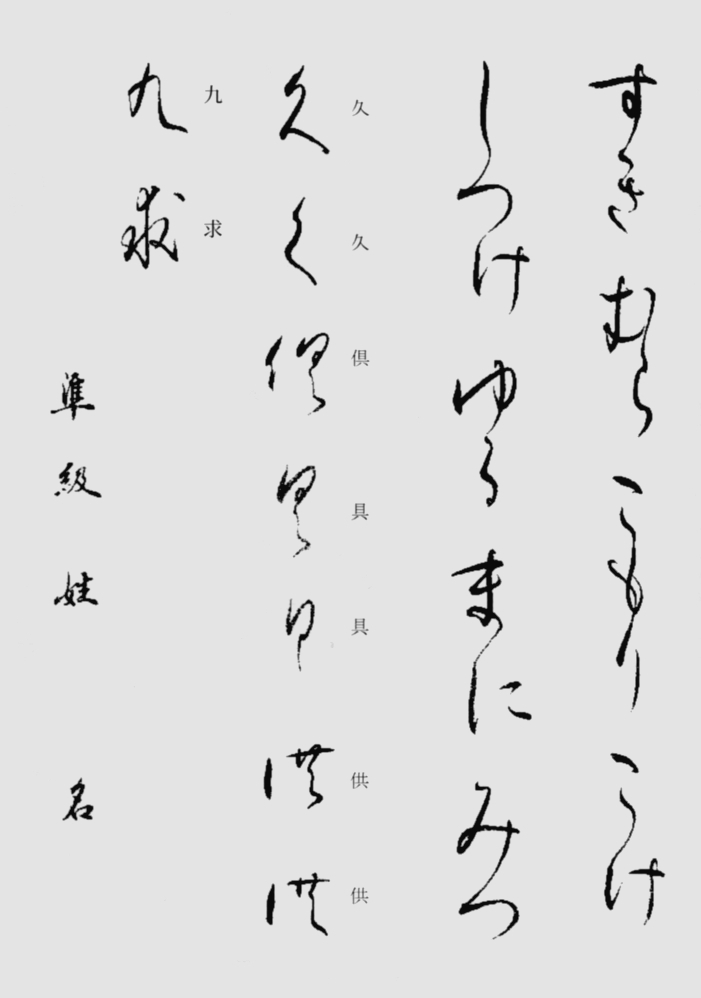 すき むら こもり こけ
しつけ ゆる まに みつ
久 久 俱 具 具 供 供
久 く 俱 具 具 供 供
九 求
九 求
準 級 姓 名